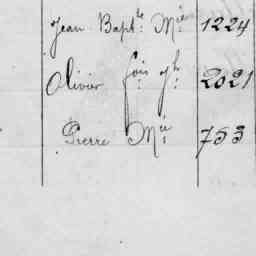 Jean Bapte Mie 1224
Olivier fois jh 2021
Pierre Mie 753